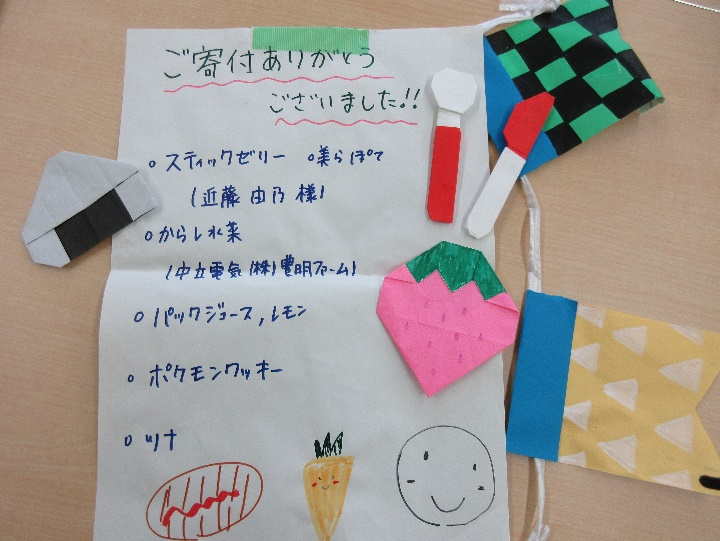 ご寄付ありがとう
ございました!!
○スティックゼリー ○美らぽて
(近藤 由乃 様)
○からし水菜
(中立電気(株)豊明ファーム)
○パックジュース,レモン
○ポケモンクッキー
○ツナ